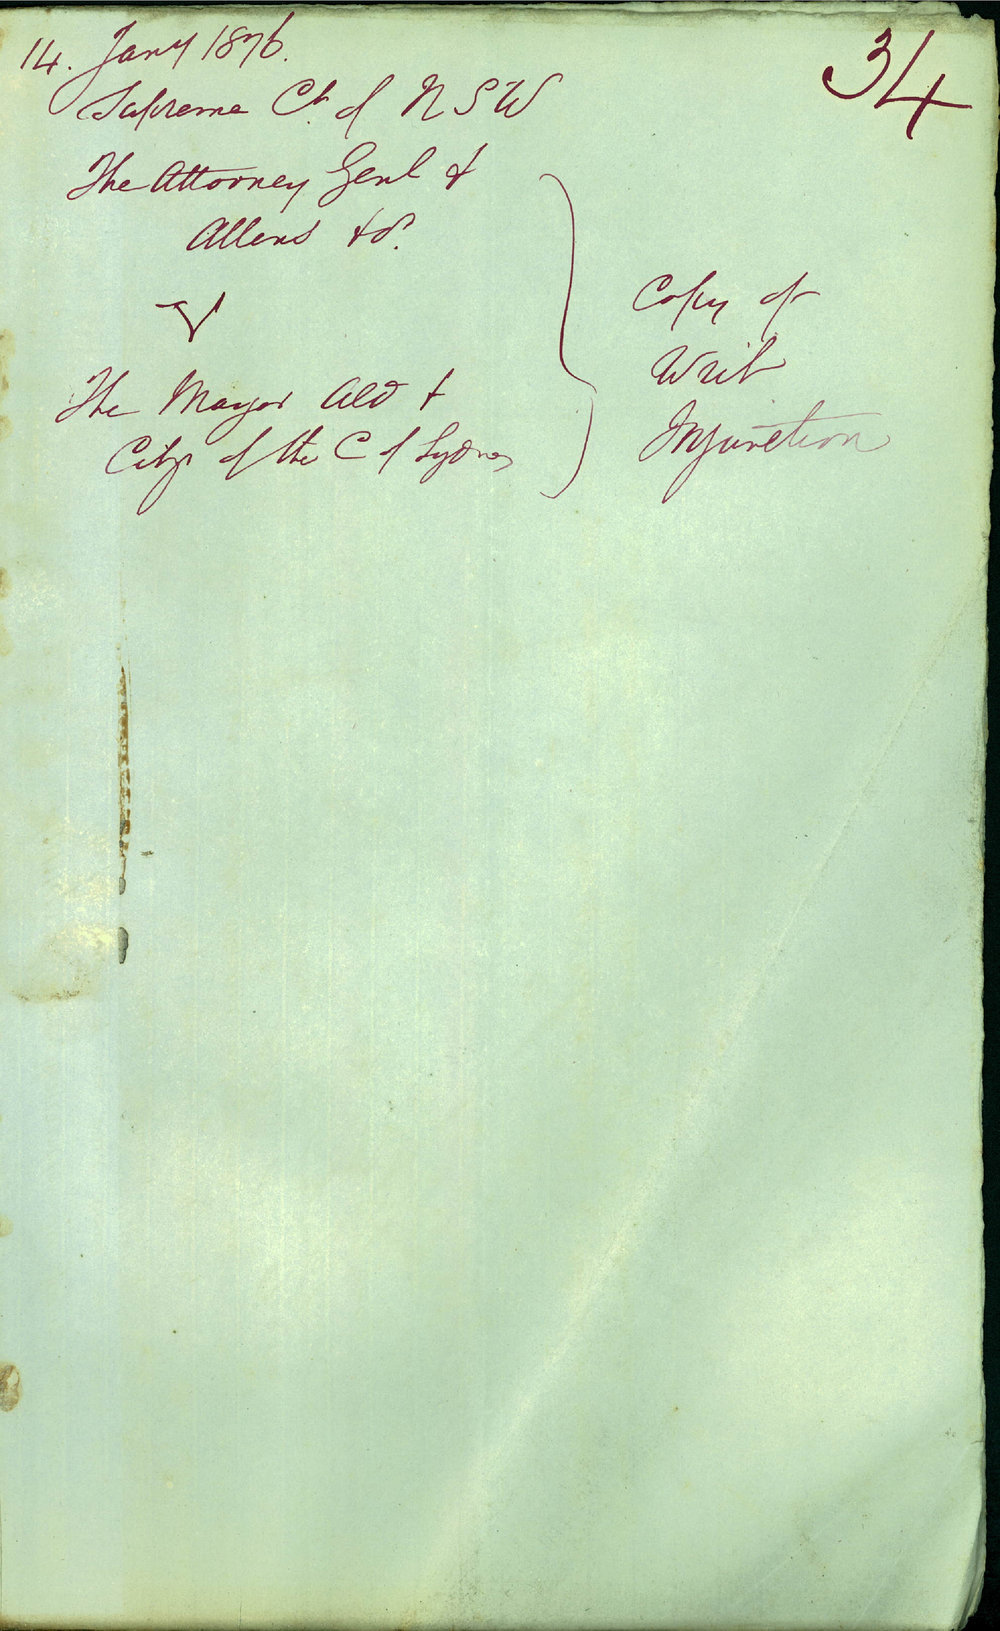 34
14. Jany 1876.
Supreme Ct. of N S W
The Attorney Genl &
Allens & o.
v
The Mayor Ald &
Citzs of the C of Sydney
Copy of
Writ
Injunction